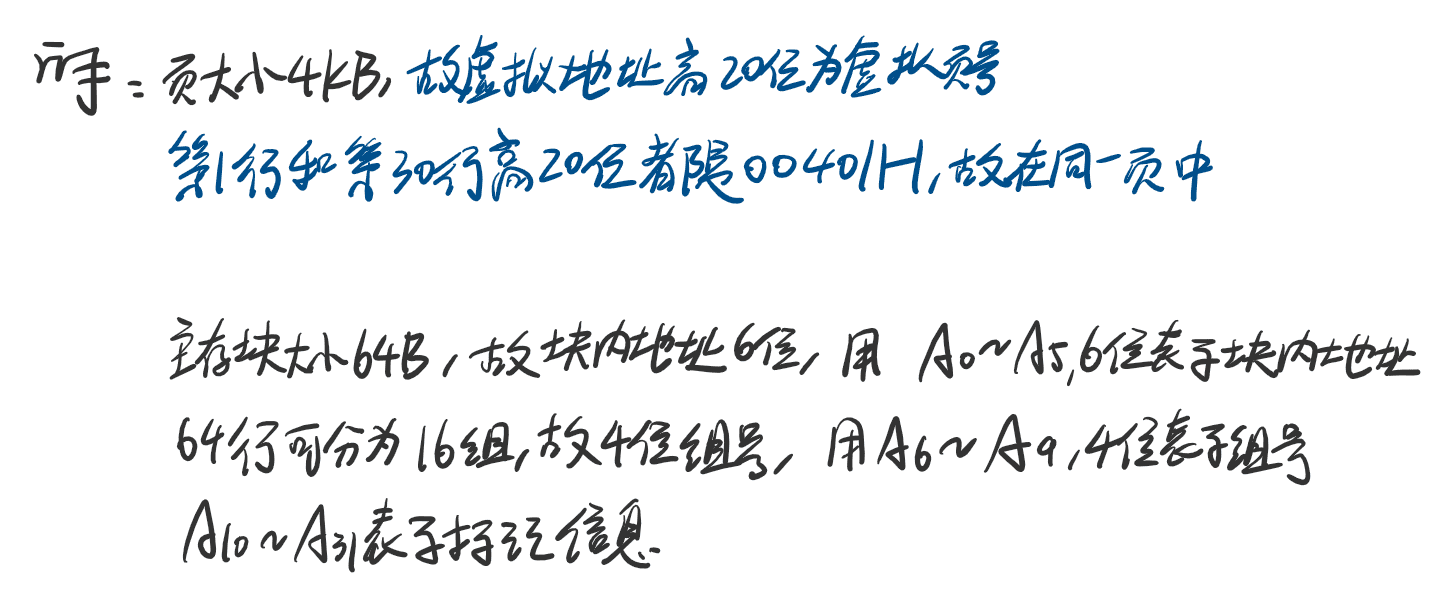 页大小4KB,故虚拟地址高20位为虚拟页号
第1行和第30行高20位都是00401H,故在同一页中
主存块大小64B,故块内地址6位,用 A0~A5,6位表示块内地址
64行可分为16组,故4位组号,用A6~A9,4位表示组号
A10~A31表示标记信息.